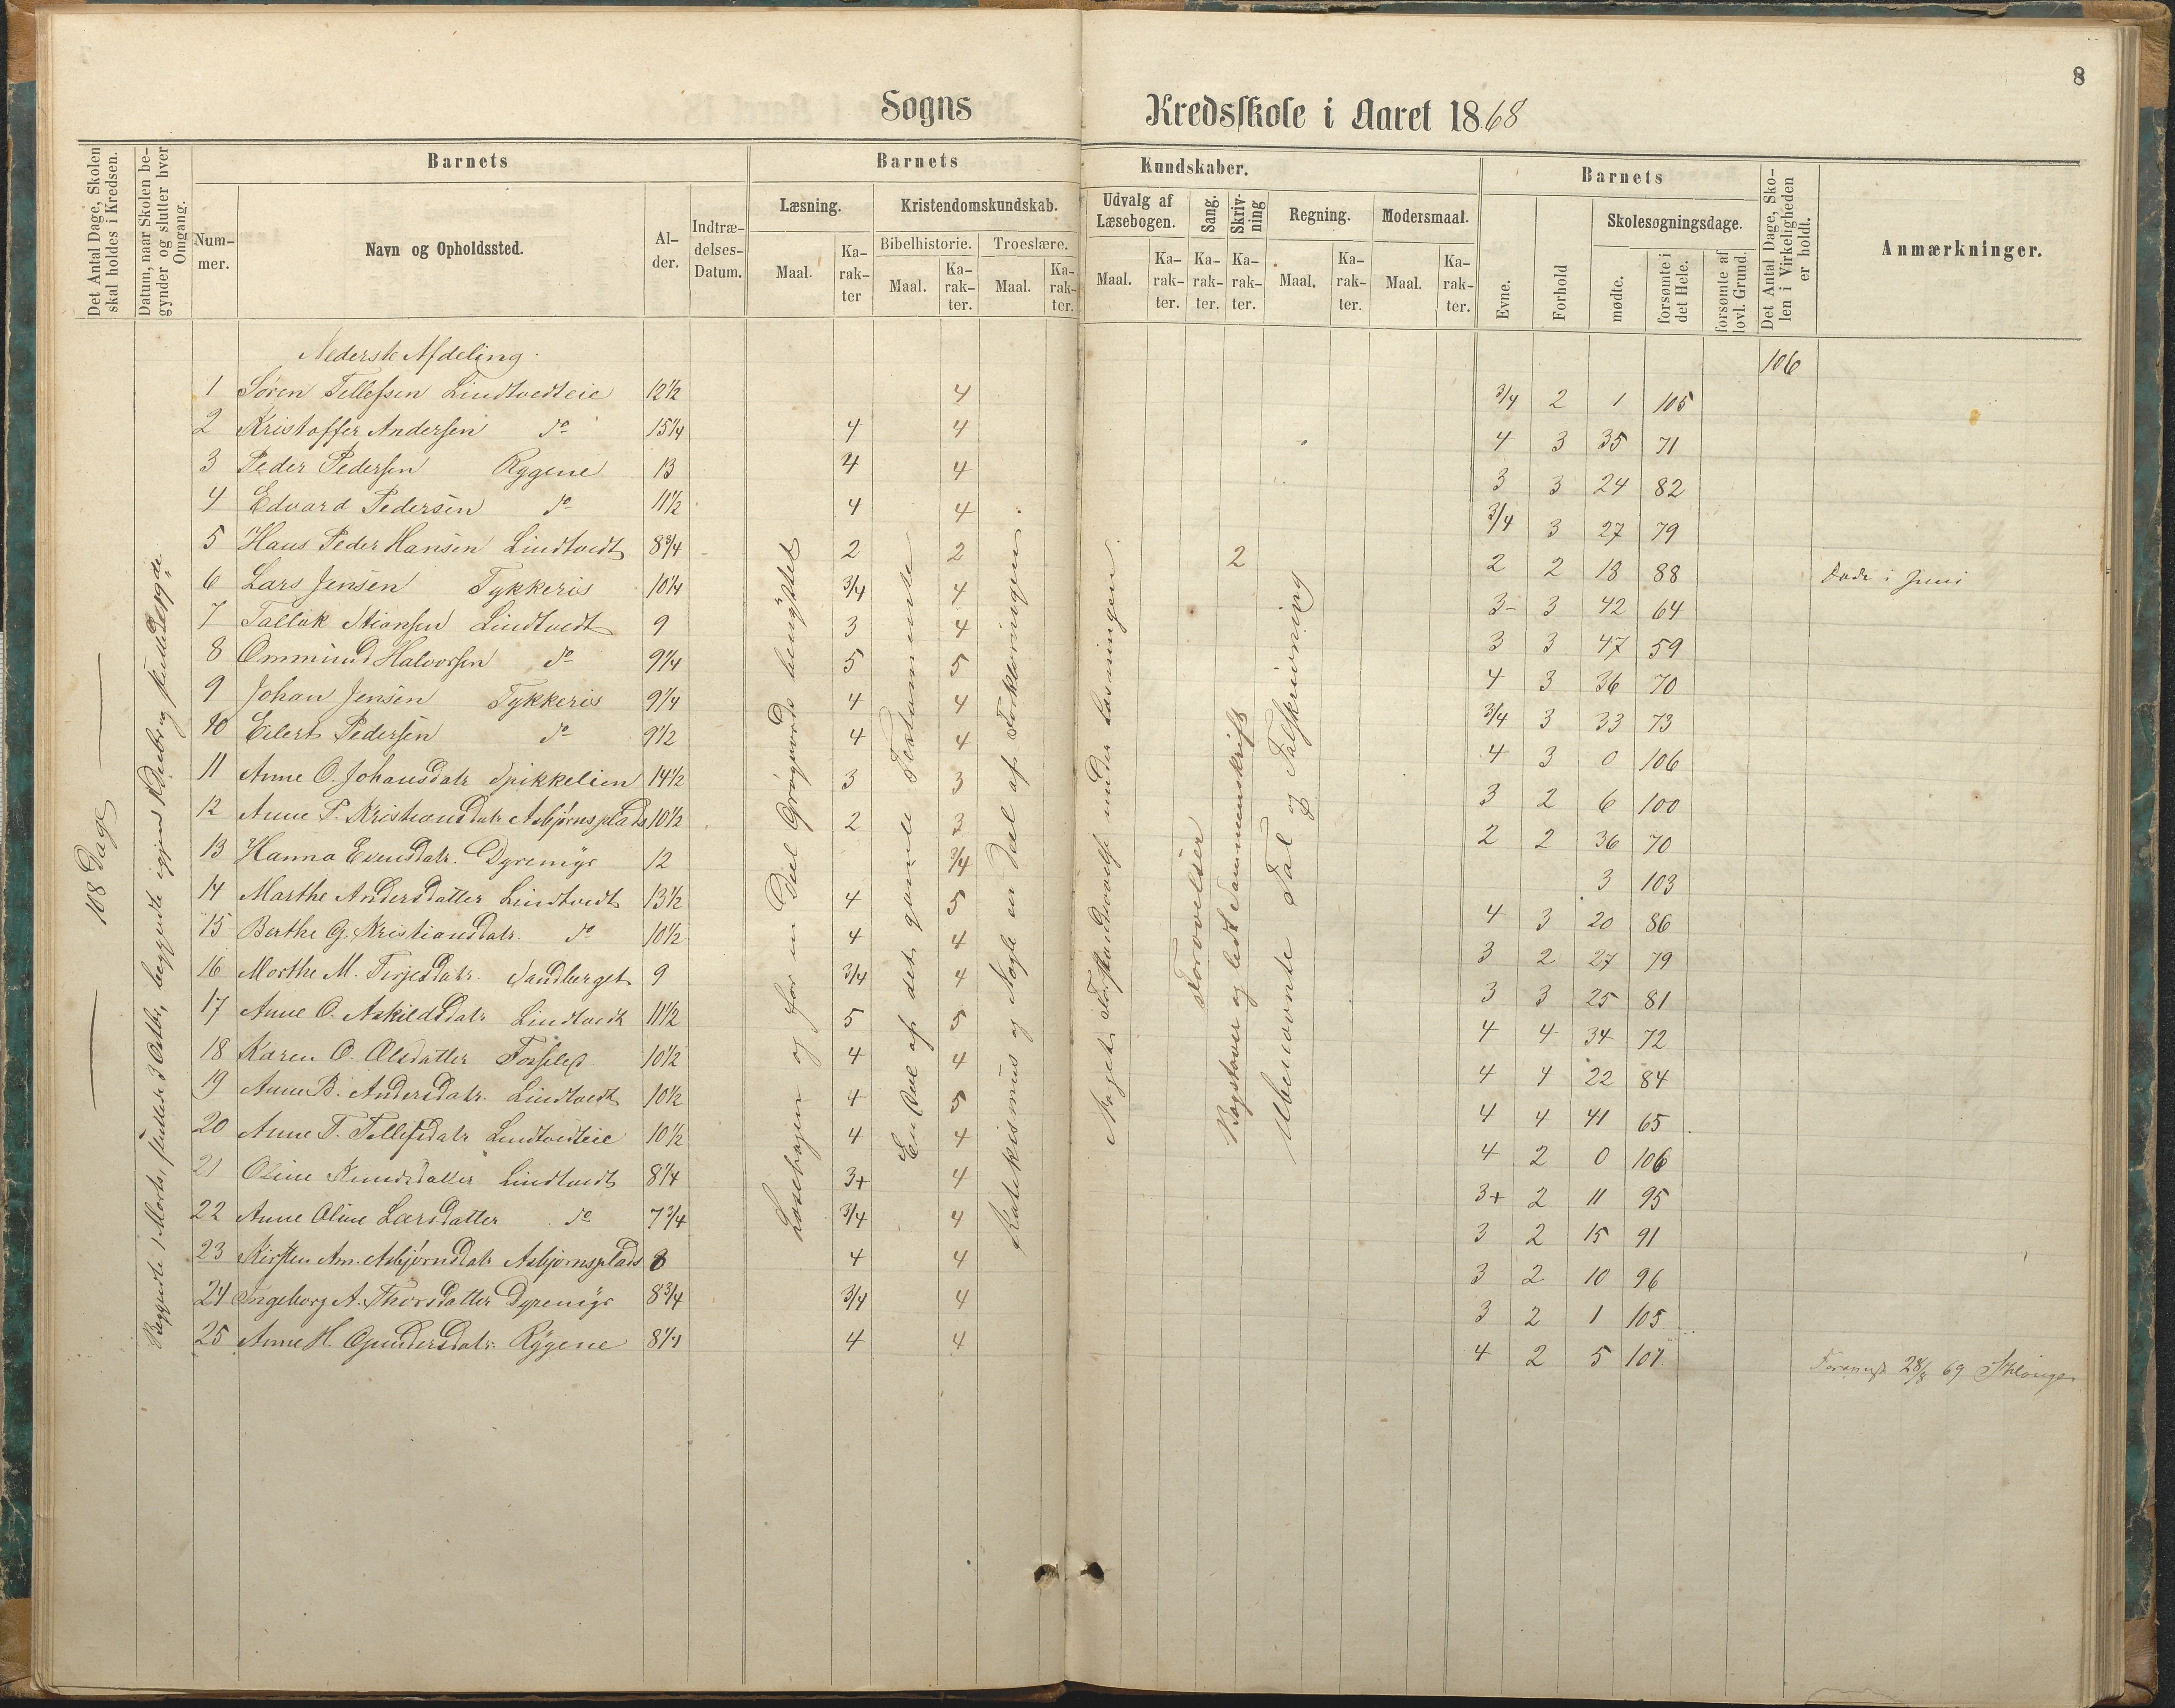 8
Sogns Kredsskole i Aaret 1868
Det Antal Dage, Skolen skal holdes i Kredsen.
Datum, naar Skolen begynder og slutter hver Omgang.
Barnets Barnets Kundskaber. Barnets
Nummer. Navn og Opholdssted. Alder. Indtrædelses-Datum.
Læsning. Kristendomskundskab. Udvalg af Læsebogen. Sang. Skrivning Regning. Modersmaal.
Bibelhistorie. Troeslære.
Maal. Karakter Maal. Karakter. Maal. Karakter. Maal. Karakter. Karakter. Karakter. Maal. Karakter. Maal. Karakter.
Evne. Forhold Skolesøgningsdage. mødte. forsømte i det Hele. forsømte af lovl. Grund.
Det Antal Dage, Skolen i Virkeligheden er holdt.
Anmærkninger.
108 Dage
Nederste Afdeling. 106
1 Søren Tellefsen Lindtvedteie 12 1/2 4 3/4 2 1 105
2 Kristoffer Andersen do 15 1/4 4 4 4 3 35 71
3 Peder Pedersen Rygene 13 4 4 3 3 24 82
4 Edvard Pedersen do 11 1/2 4 4 3/4 3 27 79
5 Hans Peder Hansen Lindtvedt 8 3/4 2 2 2 2 2 18 88 Døde i Juni
6 Lars Jensen Tykkeris 10 1/4 3/4 4 3- 3 42 64
7 Tallak Lindtvedt 9 3 4 3 3 47 59
8 Ommund Halvorsen do 9 1/4 5 5 4 3 36 70
9 Johan Jensen Tykkeris 9 1/4 4 4 3/4 3 33 73
10 Eilert Pedersen do 9 1/2 4 4 4 3 0 106
11 Anne O. Johansdatr 14 1/2 3 3 3 2 6 100
12 Anne P. Kristiansdatr Asbjørnsplads 10 1/2 2 3 2 2 36 70
13 Hanna Evensdatr. Dyremyr 12 3/4 3 103
14 Marthe Andersdatter Lindtvedt 13 1/2 4 5 4 3 20 86
15 Berthe G. Kristiansdatr. do 10 1/2 4 4 3 2 27 79
16 Marthe M. Terjesdatr. Sandberget 9 3/4 4 3 3 25 81
17 Anne O. Askildsdatr Lindtvedt 11 1/2 5 5 4 4 34 72
18 Karen O. Olsdatter 10 1/2 4 4 4 4 22 84
19 Anne B. Andersdatr. Lindtvedt 10 1/2 4 5 4 4 41 65
20 Anne T. Tellefsdatr Lindtvedteie 10 1/2 4 4 4 2 0 106
21 Oline Knudsdatter Lindtvedt 8 1/4 3+ 4 3+ 2 11 95
22 Anne Oline Larsdatter do 7 3/4 3/4 4 3 2 15 91
23 Kirsten An. Asbjørnsdatr Asbjørnsplads 8 4 4 3 2 10 96
24 Ingeborg A. Thorsdatter Dyremyr 8 3/4 3/4 4 3 2 1 105
25 Anne H. Gundersdatr. Rygene 8 1/4 4 4 4 2 5 101
28/8 69
Læsebogen og for en Deel Grøgaards benyttet
En Del af det gamle Testamente
Katekismus og Nogle en Deel af Forklaringen.
Noget under Læsningen.
Bogstaver og ledt Sammenskrift
Ubenævnte Tal og Talskrivning